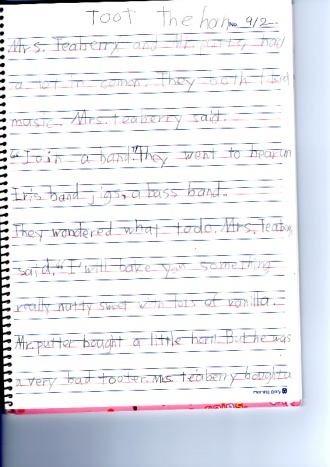 Toot the horn No. 9/2
Mrs. Teaberry and Mr. putter had
a lot in comon. They both liked
music. Mrs. teaberry said.
"Join a band." They went to hear an
Iris band, jigs, a bass band.
They wondered what todo. Mrs. Teaberry
said, "I will bake you something
really nutty sweet with lots of vanilla.
Mr. putter bought a little horn. But he was
a very bad tooter. Mrs. Teaberry bought a